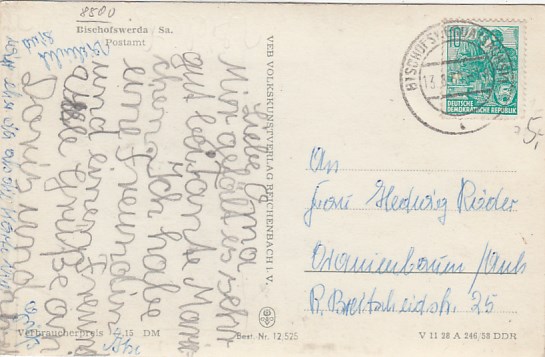 8500
Bischofswerda / Sa.
Postamt
Liebe Oma
Mir gefällt es sehr
gut bei Tante Mann-
chen. Ich habe
eine Freundin
und einen Freund
alle Grüße an
Doris und
VEB VOLKSKUNSTVERLAG REICHENBACH i. V.
Verbraucherpreis 0,15 DM
Best. Nr. 12,525
BISCHOFSWERDA
10
DEUTSCHE
DEMOKRATISCHE REPUBLIK
5,-
An
Frau Hedwig Rieder
Oranienbaum /Anh
R. Breitscheidstr. 25
V 11 28 A 246/58 DDR